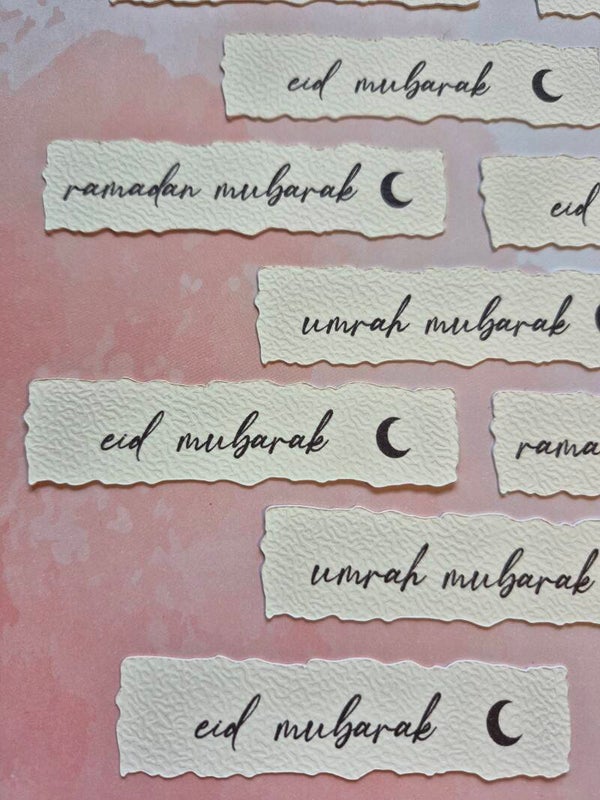 eid mubarak
ramadan mubarak
eid
umrah mubarak
eid mubarak
rama
umrah mubarak
eid mubarak